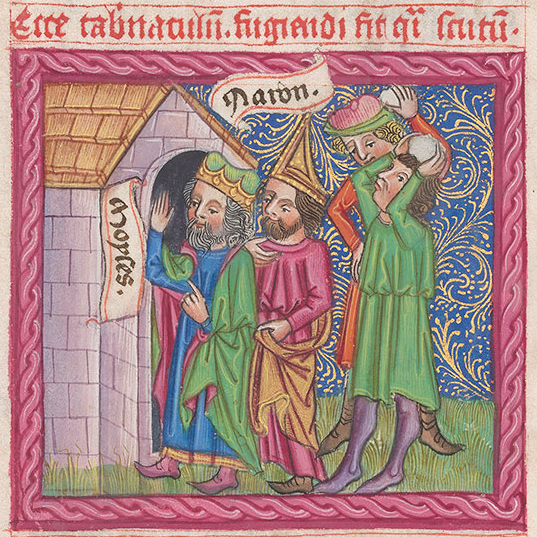 Ecce tabnaculū. fugiendi fit qī scutū.
Aaron.
moyses.